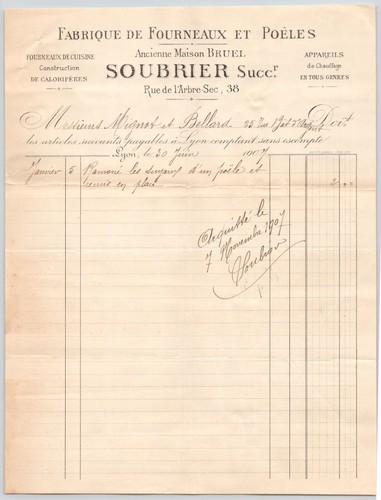 FABRIQUE DE FOURNEAUX ET POÊLES
FOURNEAUX DE CUISINE
Construction
DE CALORIFÈRES
Ancienne Maison BRUEL
SOUBRIER Succr
Rue de l'Arbre-Sec, 38
APPAREILS
de Chauffage
EN TOUS GENRES
Messieurs Mignot et Bellard 25 Rue Doit
les articles suivants payables à Lyon comptant sans escompte
Lyon, le 30 Juin 1907
Janvier 5 Ramoné les tuyaux d'un poêle et
remis en place
2
Acquitté le
7 Novembre 1907
Soubrier